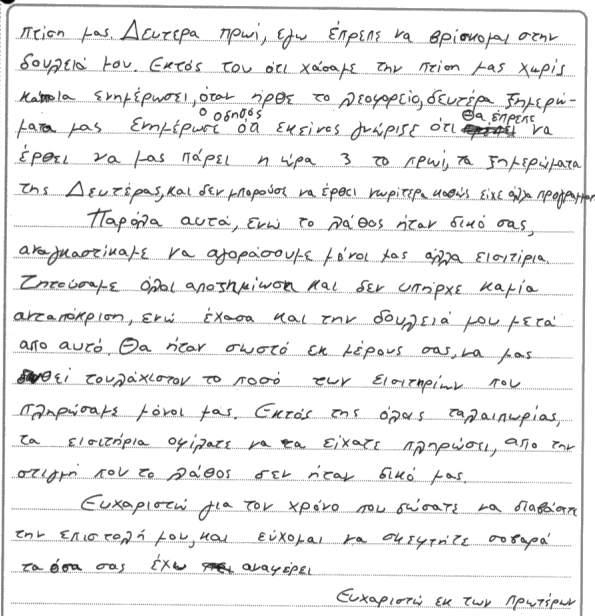 πτίση μας. Δευτέρα πρωί, εγω έπρεπε να βρίσκομαι στην
δουλειά μου. Εκτός του ότι χάσαμε την πτίση μας χωρίς
κάποια ενημέρωσει, όταν ήρθε το λεοφορείο, δευτέρα ξημερώ-
ματα μας ενημέρωσε ο οδηγός ότι εκείνος γνώριζε ότι θα έπρεπε να
έρθει να μας πάρει η ώρα 3 το πρωί, τα ξημερώματα
της Δευτέρας, και δεν μπορούσε να έρθει νωρίτερα καθώς είχε άλλα προγραμματα
Παρόλα αυτά, ενώ το λάθος ήταν δικό σας,
αναγκαστίκαμε να αγοράσουμε μόνοι μας άλλα εισιτίρια.
Ζητούσαμε όλοι αποζημίωση και δεν υπήρχε καμία
ανταπόκριση, ενώ έχασα και την δουλειά μου μετά
απο αυτό. Θα ήταν σωστό εκ μέρους σας, να μας
δοθεί τουλάχιστον το ποσό των εισιτηρίων που
πληρώσαμε μόνοι μας. Εκτός της όλης ταλαιπωρίας,
τα εισιτήρια οφίλατε να τα είχατε πληρώσει, απο την
στιγμή που το λάθος δεν ήταν δικό μας.
Ευχαριστώ για τον χρόνο που δώσατε να διαβάσετε
την επιστολή μου, και εύχομαι να σκεφτήτε σοβαρά
τα όσα σας έχω αναφέρει
Ευχαριστώ εκ των πρωτέρων